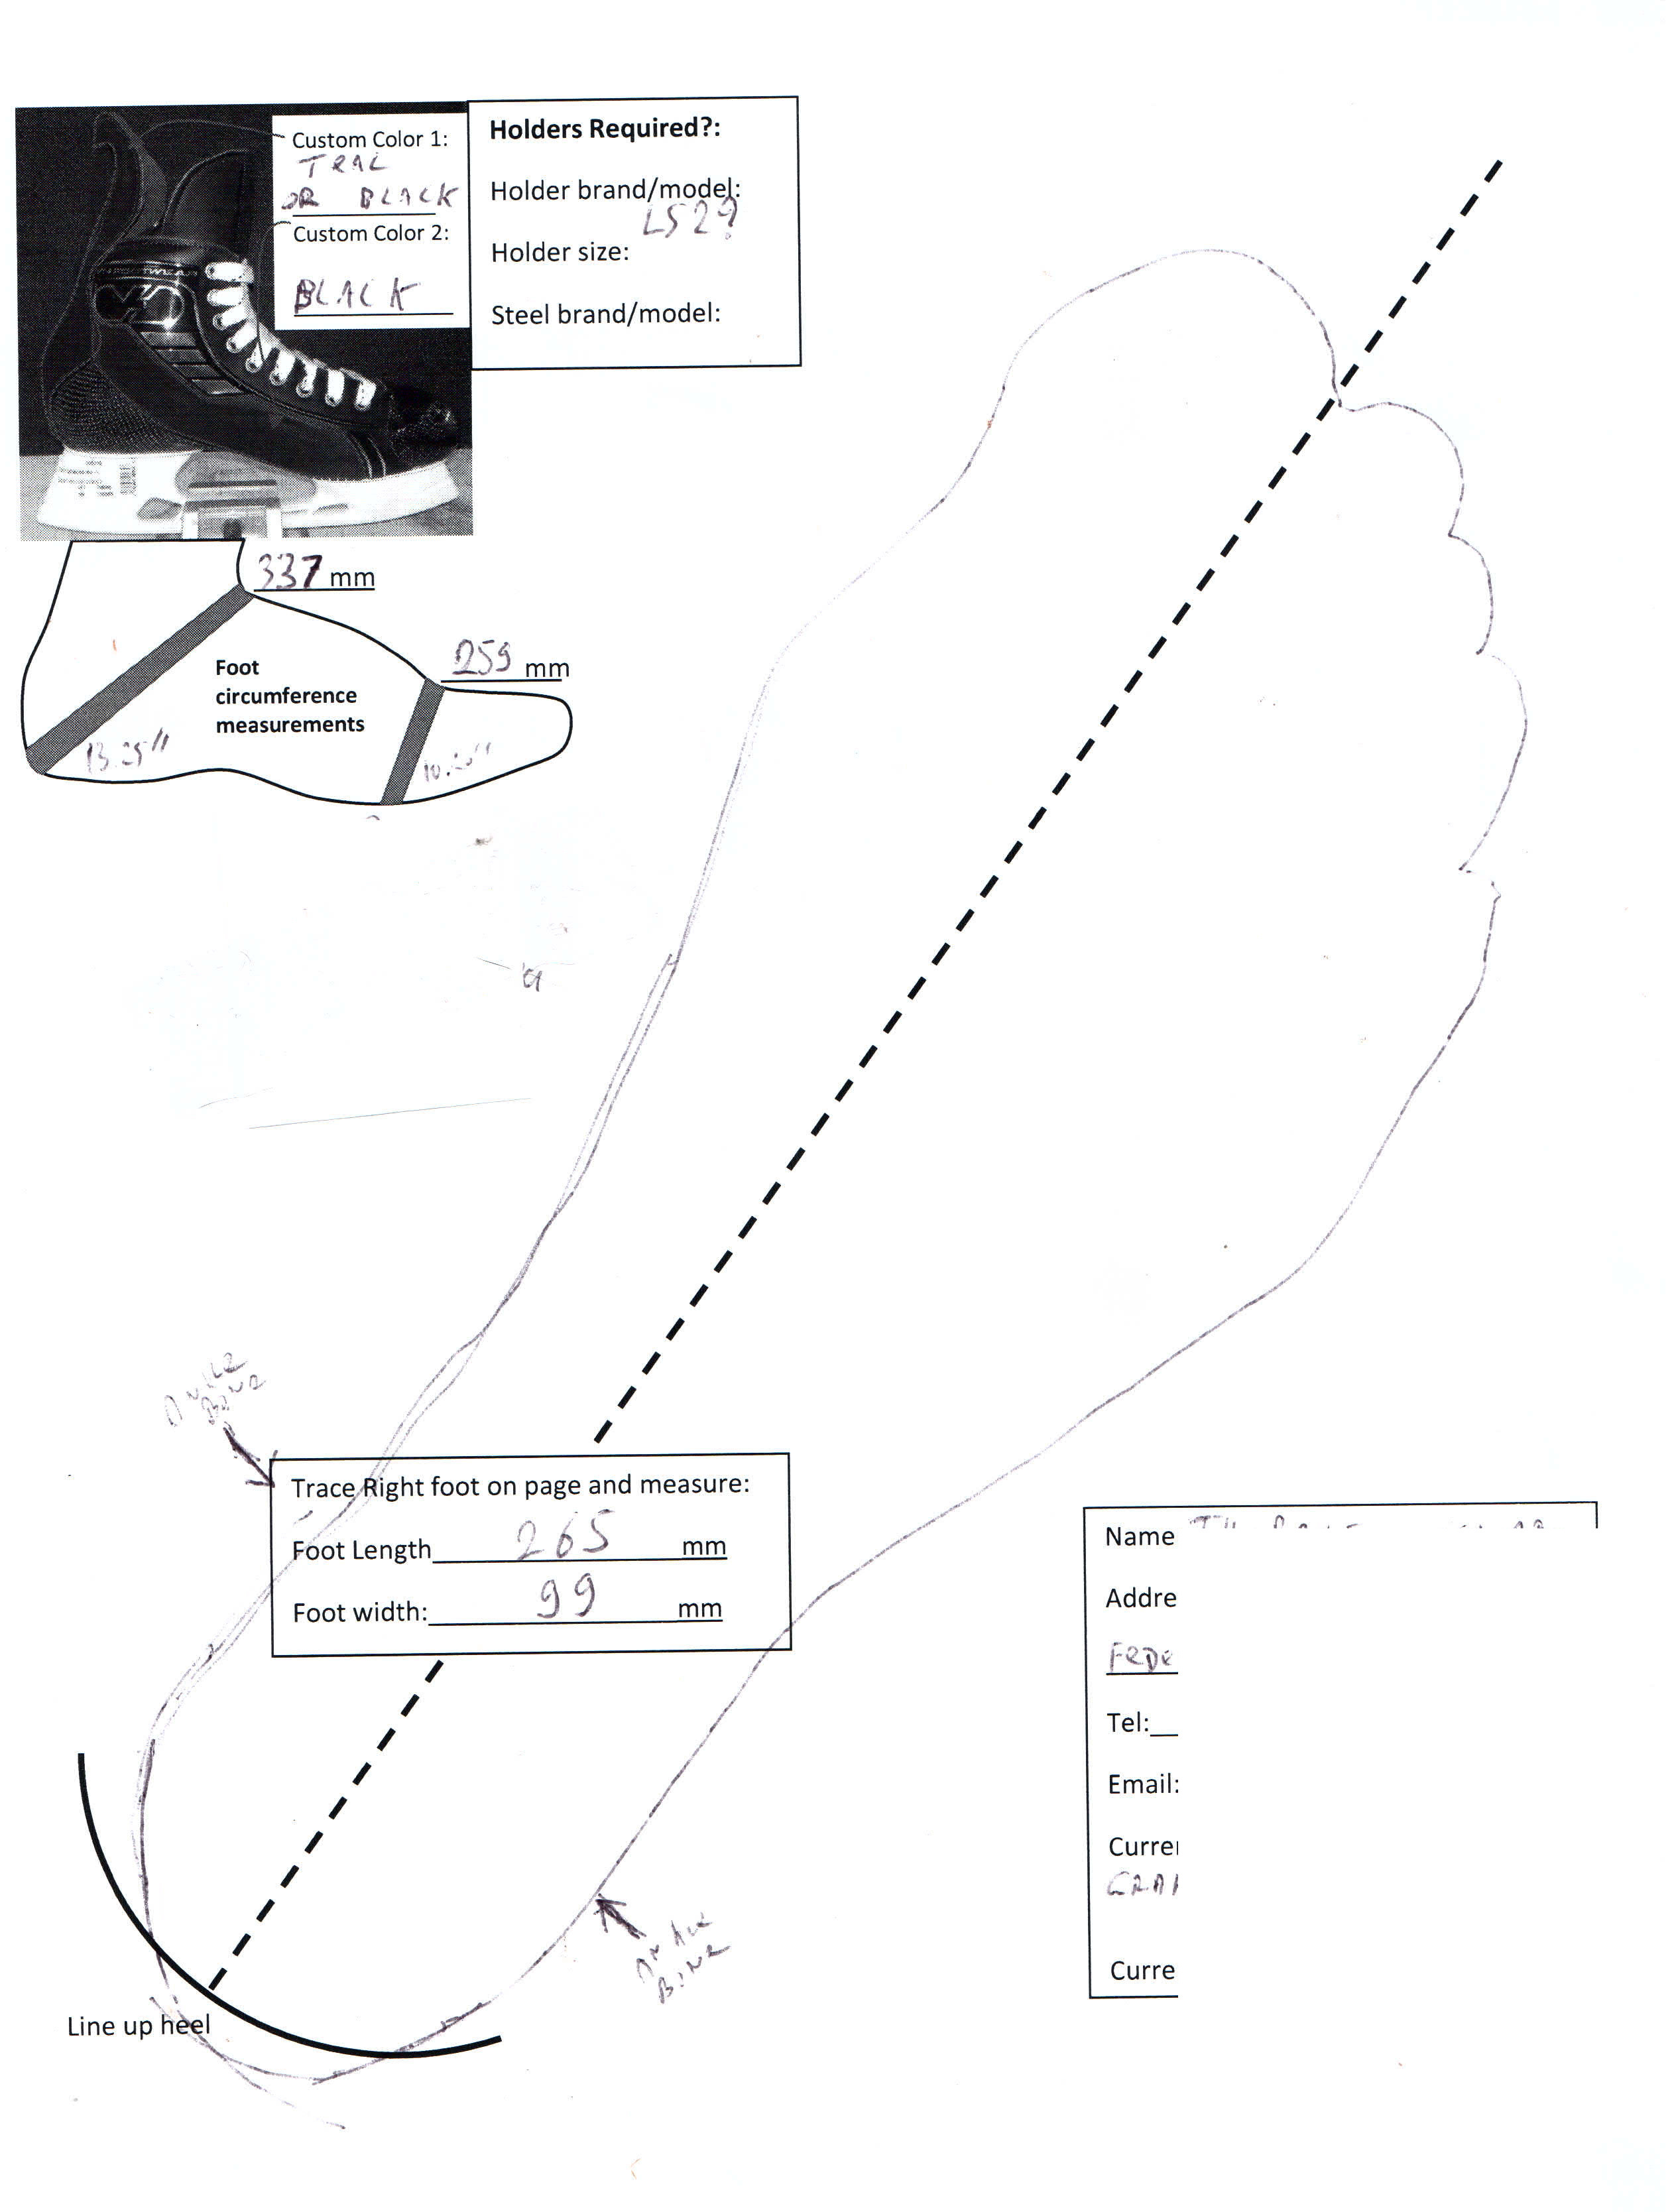 Custom Color 1:
TEAL
OR BLACK
Custom Color 2:
BLACK
Holders Required?:
Holder brand/model:
LS2?
Holder size:
Steel brand/model:
337 mm
259 mm
Foot
circumference
measurements
13.25"
ANKLE
BONE
Trace Right foot on page and measure:
Foot Length 265 mm
Foot width: 99 mm
Name
Addre
Tel:
Email:
Currer
Curre
ANKLE
BONE
Line up heel